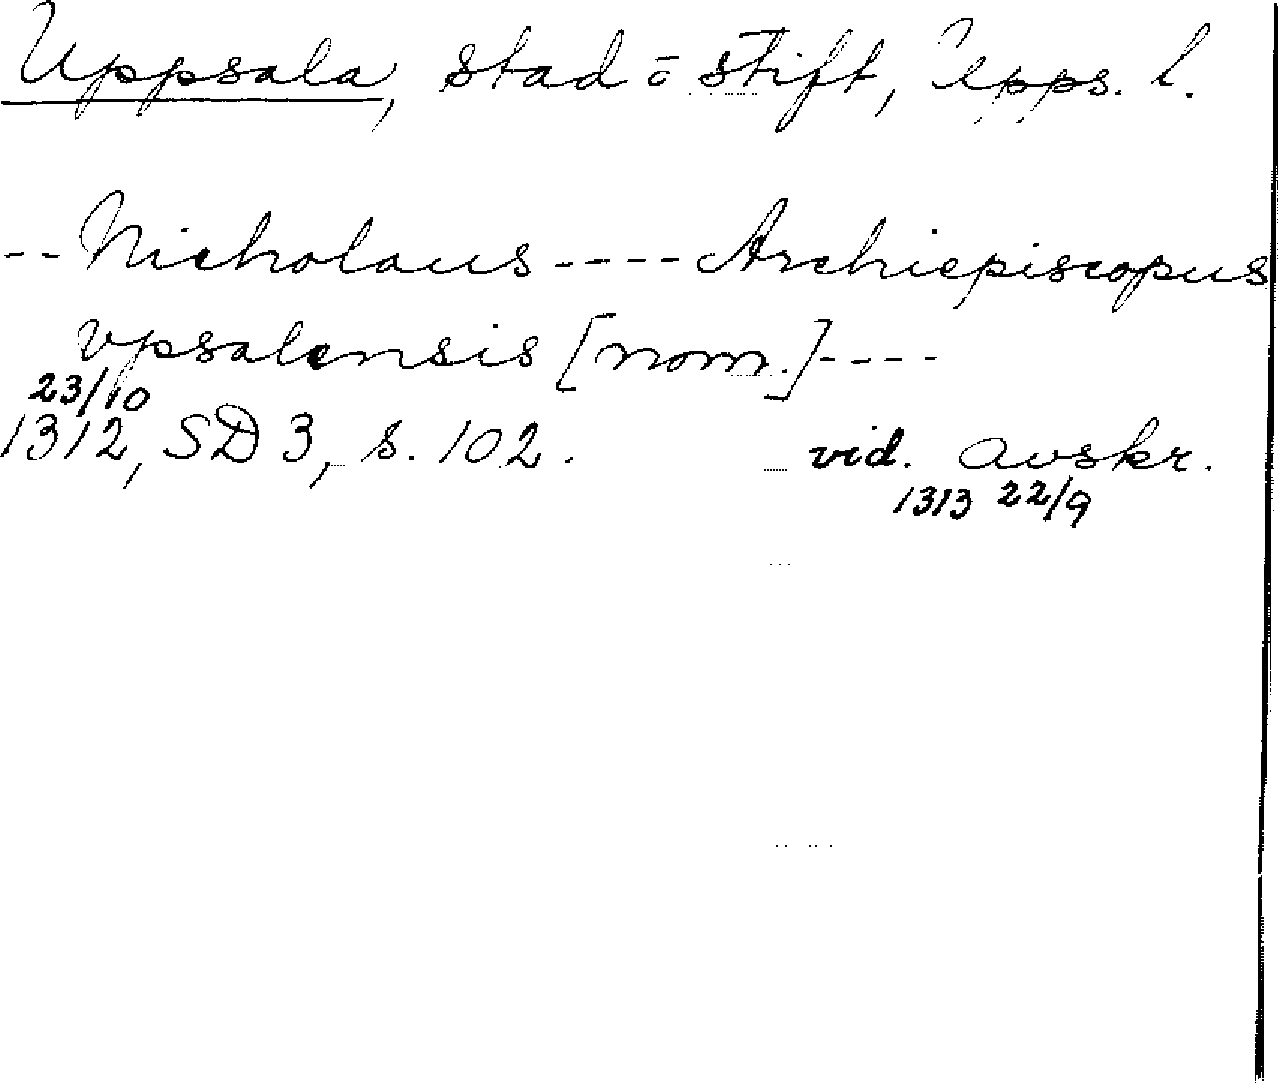 Uppsala, stad o stift, Upps. l.
-- Nicholaus ---- Archiepiscopus
vpsalensis [nom.] ----
23/10
1312, SD 3, s. 102. vid. avskr.
1313 22/9